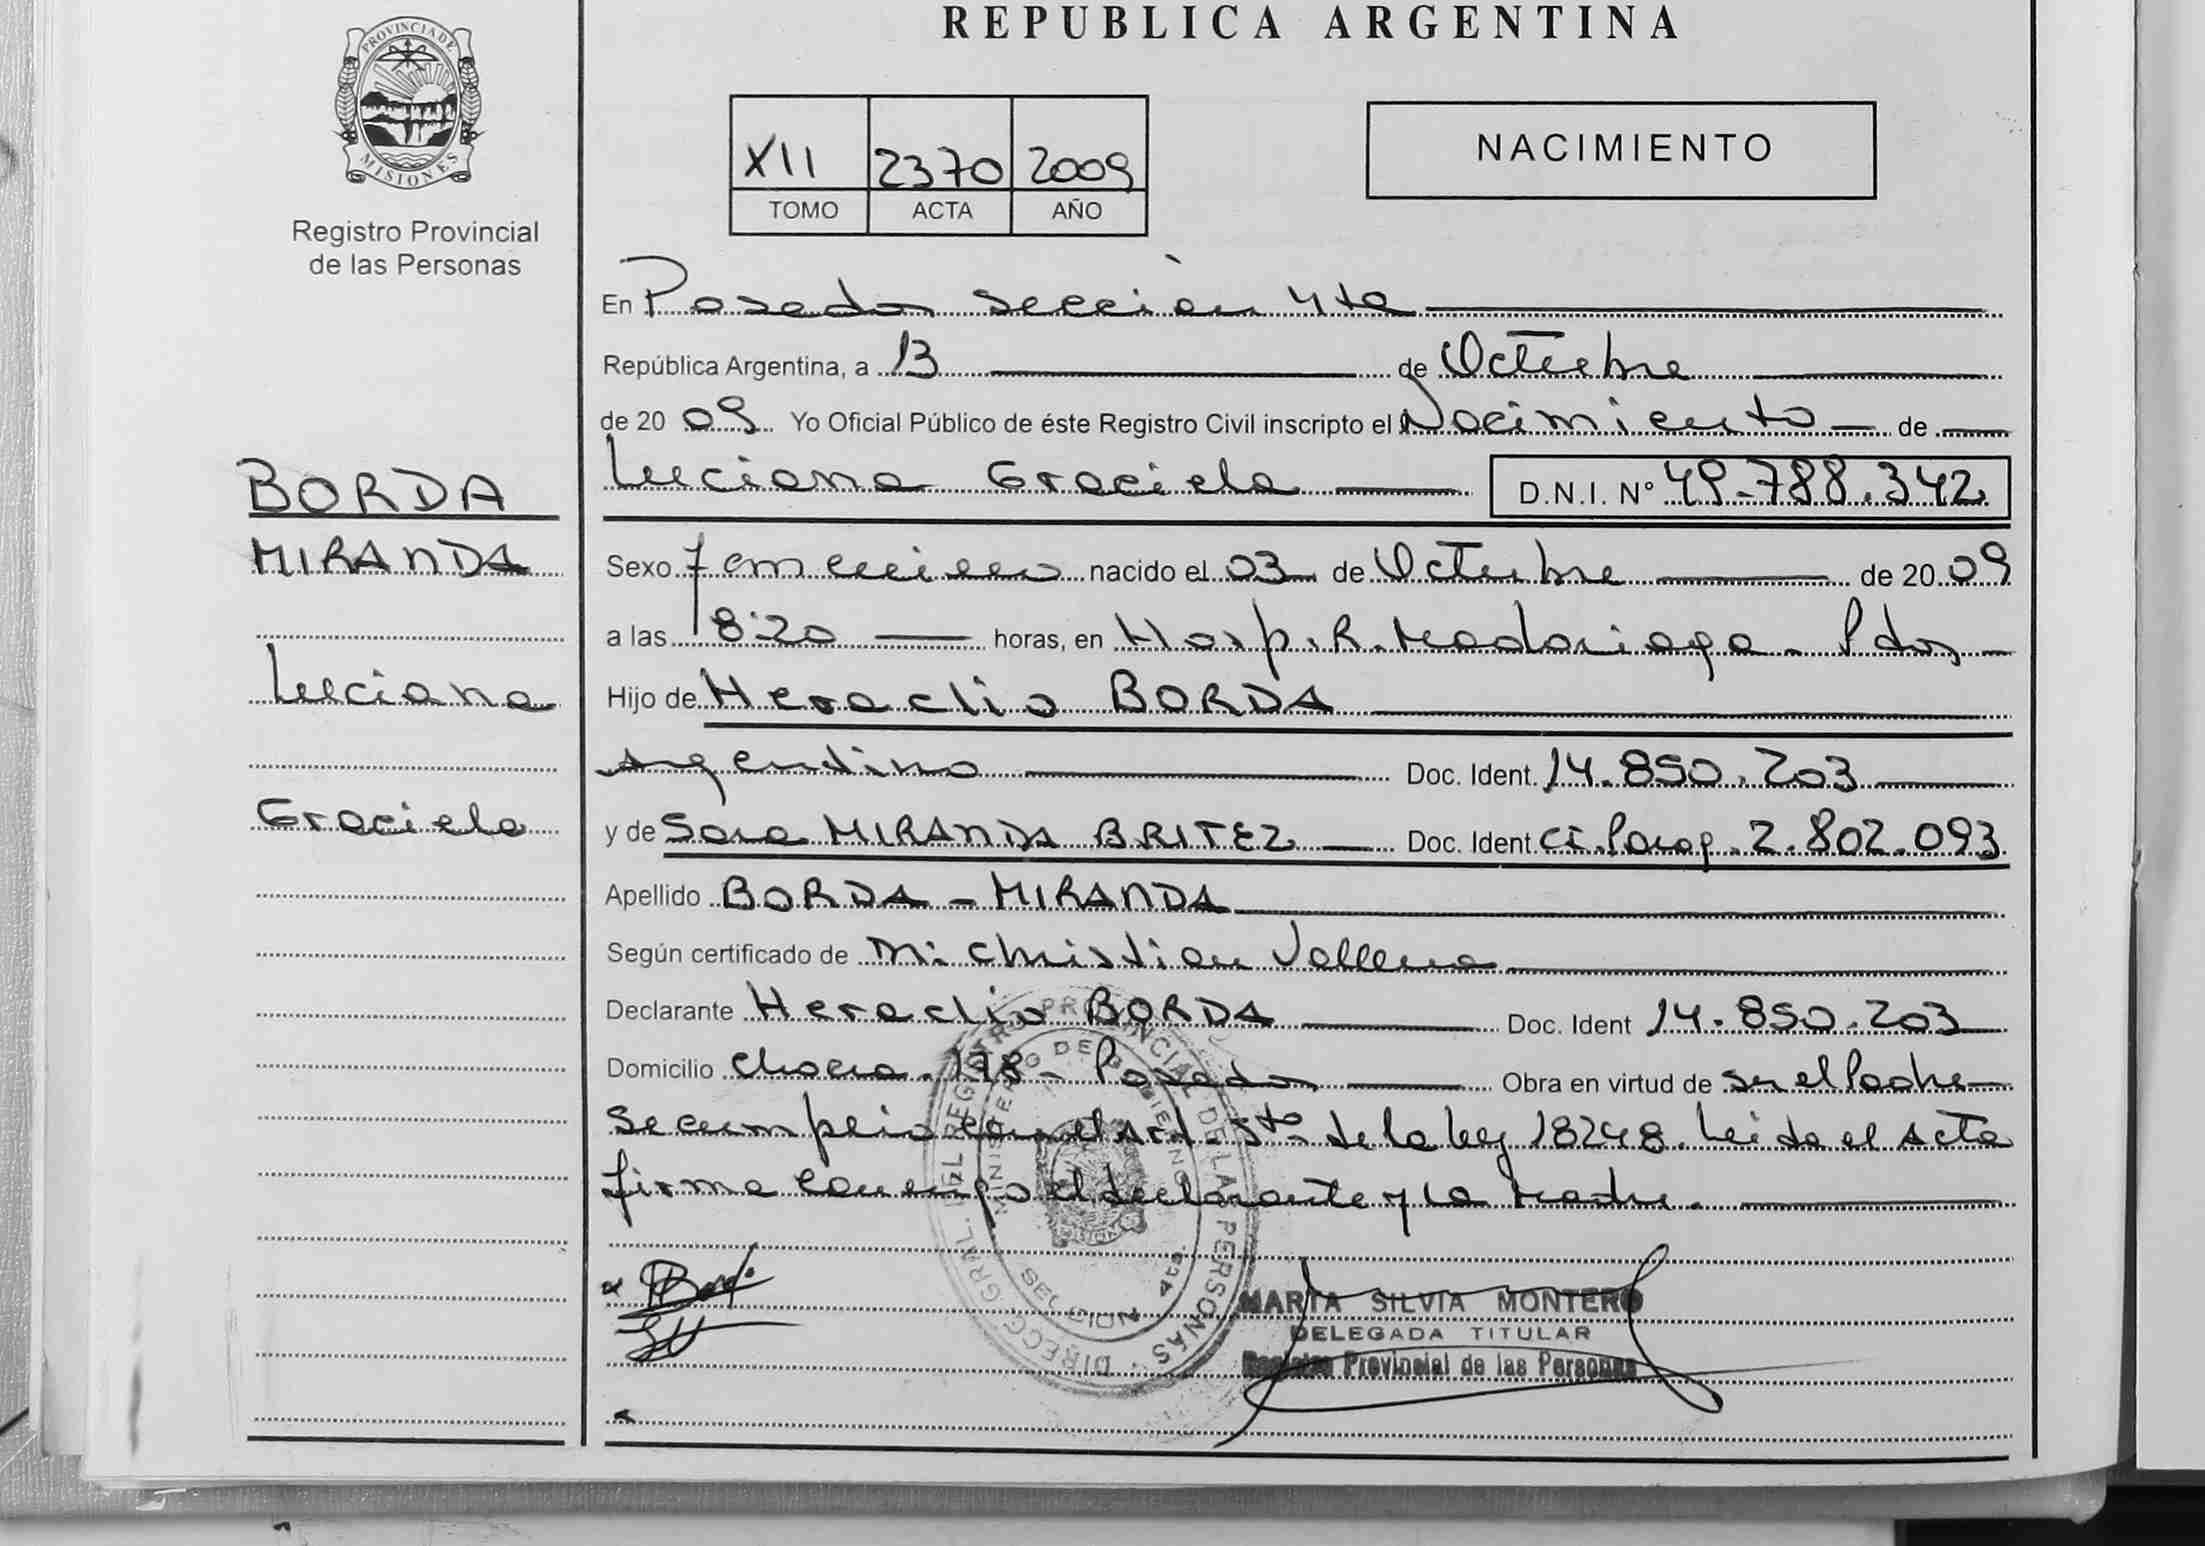 REPUBLICA ARGENTINA
PROVINCIA DE
MISIONES
Registro Provincial
de las Personas
XII 2370 2009
TOMO ACTA AÑO
NACIMIENTO
En Posadas sección 4ta
República Argentina, a 13 de Octubre
de 20 09 Yo Oficial Público de éste Registro Civil inscripto el Nacimiento de
Luciana Graciela D.N.I. Nº 49.788.342
BORDA
MIRANDA
Luciana
Graciela
Sexo femenino nacido el 03 de Octubre de 20 09
a las 8:20 horas, en Hosp. R. Madariaga - Pdas
Hijo de Heraclio BORDA
Argentino Doc. Ident. 14.850.203
y de Sara MIRANDA BRITEZ Doc. Ident CI. Parag. 2.802.093
Apellido BORDA - MIRANDA
Según certificado de M: Christian
Declarante Heraclio BORDA Doc. Ident 14.850.203
Domicilio Chacra 178 - Posadas Obra en virtud de ser el Padre
Se cumplió con el Art. 5to de la ley 18248. Leida el Acta
firma conmigo el declarante y la Madre.
DIRECC. GRAL. DEL REGISTRO PROVINCIAL DE LAS PERSONAS
MINISTERIO DE GOBIERNO
SECCION 4ta.
MARTA SILVIA MONTERO
DELEGADA TITULAR
Registro Provincial de las Personas